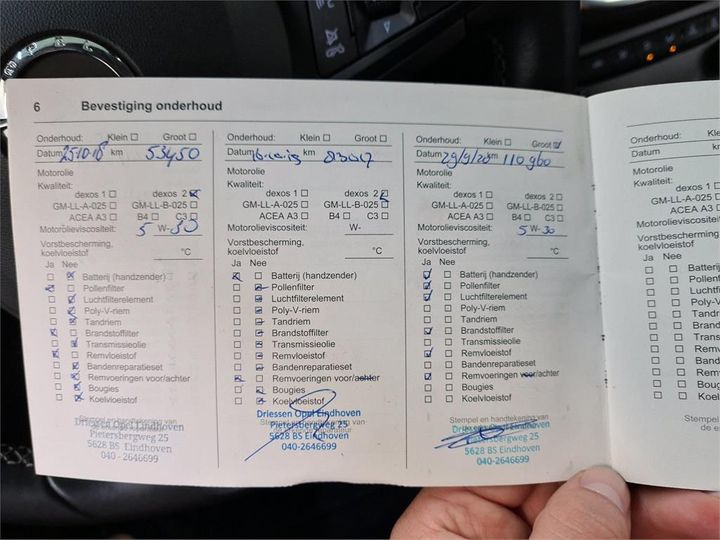 6 Bevestiging onderhoud
Onderhoud: Klein Groot
Datum 25-10-18 km 53450
Motorolie
Kwaliteit:
dexos 1 dexos 2
GM-LL-A-025 GM-LL-B-025
ACEA A3 B4 C3
Motorolieviscositeit: 5 W-30
Vorstbescherming,
koelvloeistof °C
Ja Nee
Batterij (handzender)
Pollenfilter
Luchtfilterelement
Poly-V-riem
Tandriem
Brandstoffilter
Transmissieolie
Remvloeistof
Bandenreparatieset
Remvoeringen voor/achter
Bougies
Koelvloeistof
Stempel en handtekening van
Driessen Opel Eindhoven
Pietersbergweg 25
5628 BS Eindhoven
040-2646699
Onderhoud: Klein Groot
Datum km
Motorolie
Kwaliteit:
dexos 1 dexos 2
GM-LL-A-025 GM-LL-B-025
ACEA A3 B4 C3
Motorolieviscositeit: W-
Vorstbescherming,
koelvloeistof °C
Ja Nee
Batterij (handzender)
Pollenfilter
Luchtfilterelement
Poly-V-riem
Tandriem
Brandstoffilter
Transmissieolie
Remvloeistof
Bandenreparatieset
Remvoeringen voor/achter
Bougies
Koelvloeistof
Driessen Opel Eindhoven
Pietersbergweg 25
5628 BS Eindhoven
040-2646699
Onderhoud: Klein Groot
Datum 29/9/20 km 110960
Motorolie
Kwaliteit:
dexos 1 dexos 2
GM-LL-A-025 GM-LL-B-025
ACEA A3 B4 C3
Motorolieviscositeit: 5 W-30
Vorstbescherming,
koelvloeistof °C
Ja Nee
Batterij (handzender)
Pollenfilter
Luchtfilterelement
Poly-V-riem
Tandriem
Brandstoffilter
Transmissieolie
Remvloeistof
Bandenreparatieset
Remvoeringen voor/achter
Bougies
Koelvloeistof
Stempel en handtekening van
Driessen Opel Eindhoven
Pietersbergweg 25
5628 BS Eindhoven
040-2646699
Onderhoud:
Datum
Motorolie
Kwaliteit:
GM-LL
Motorolieviscositeit
Vorstbescherming
koelvloeistof
Ja Nee
Batterij
Pollenf
Luchtfi
Poly-V
Tandri
Brands
Transm
Remvl
Bande
Remvo
Bougie
Koelvl
Stempel
de e